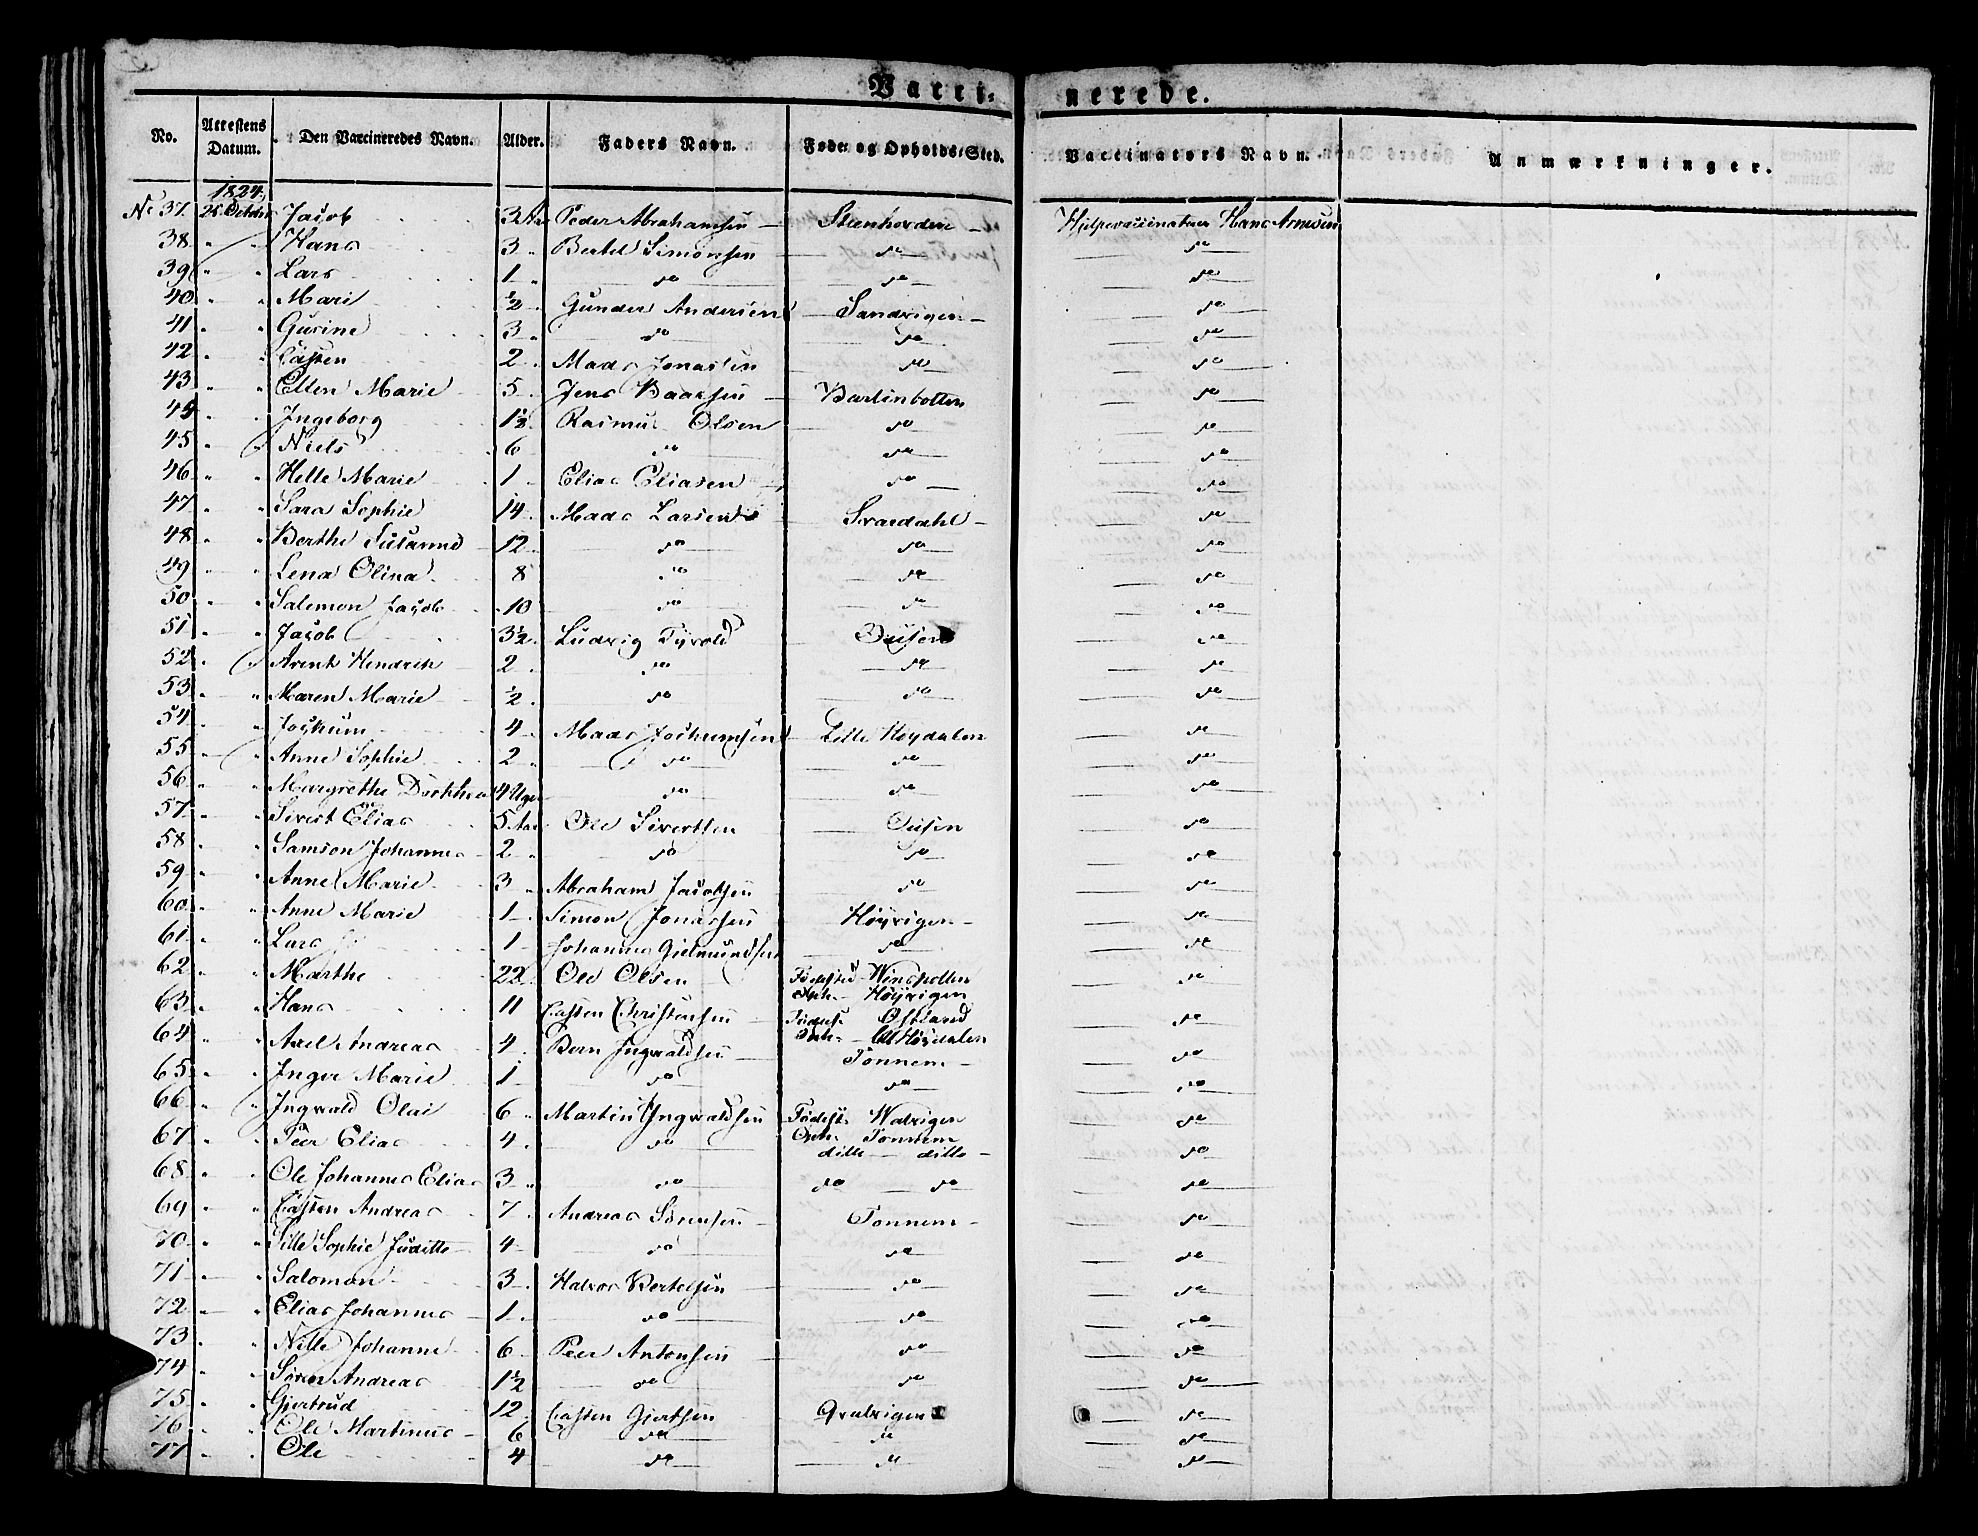 Vacci- nerede.
No. Attestens Datum. Den Vaccineredes Navn. Alder. Faders Navn. Føde- og Opholds-Sted. Vaccinators Navn. Anmærkninger.
1824
No 37. 25 Octobr Jacob 3 Aar Peder Abrahamsen Hjelpevaccinateur Hans Arnesen
38 " " Hans 3 " Berthel Simonsen do do
39 " " Lars 1 " do do do
40 " " Marie ½ " Gunder Andersen Sandvigen do
41 " " Gurine 3 " do do do
42 " " Casten 2 " Mads Jonassen do do
43 " " Ellen Marie 5 " Jens Baaesen Barlinbotten do
44 " " Ingeborg 1½ Rasmus Olsen do do
45 " " Niels 6 " do do do
46 " " Helle Marie 1 " Elias Eliasen do do
47 " " Sara Sophie 14 " Mads Larsen Svaedahl do
48 " " Berthe Susanne 12 " do do do
49 " " Lena Olina 8 do do do
50 " " Salemon Jacob 10 do do do
51 " " Jacob 3½ Ludvig Tyvold do
52 " " Arent Hendrich 2 " do do do
53 " " Maren Marie ½ do do do
54 " " Jochum 4 " Mads Jochumsen Lille Høydalen do
55 " " Anne Sophie 2 " do do do
56 " " Margrethe Dorthea 4 Uger do do do
57 " " Sivert Elias 5 Aar Ole Sivertsen do
58 " " Samson Johannes 2 " do do do
59 " " Anne Marie 3 " Abraham Jacobsen do do
60 " " Anne Marie 1 " Simon Jonassen Høyvigen do
61 " " Lars 1 Johannes Gielmundsen do do
62 " " Marthe 22 Ole Olsen Fødested Winspollen do
Oph. Høyvigen
63 " " Hans 11 Casten Christensen Fødest. Østland do
Oph. Lll Høydalen
64 " " Axel Andreas 4 " Bern Ingwaldsen Tonnem do
65 " " Inger Marie 1 do do do
66 " " Ingwald Olai 6 " Martin Ingwaldsen Fødest. Walvigen do
Oph. Tonnem
67 " " Peer Elias 4 " do ditto ditto do
68 " " Ole Johannes Elias 3 " do do do do
69 " " Casten Andreas 7 " Andreas Sørensen Tonnem do
70 " " Sille Sophie Juditte 4 do do do
71 " " Salomon 3 " Halvor Bertelsen do do
72 " " Elias Johannes 1 " do do do
73 " " Nille Johanne 6 " Peer Antonsen do do
74 " " Søren Andreas 1½ do do do
75 " " Gjertrud 12 Casten Giertsen Qvalvigen do
76 " " Ole Martinus 6 do do do
77 " " Ole 4 do do do